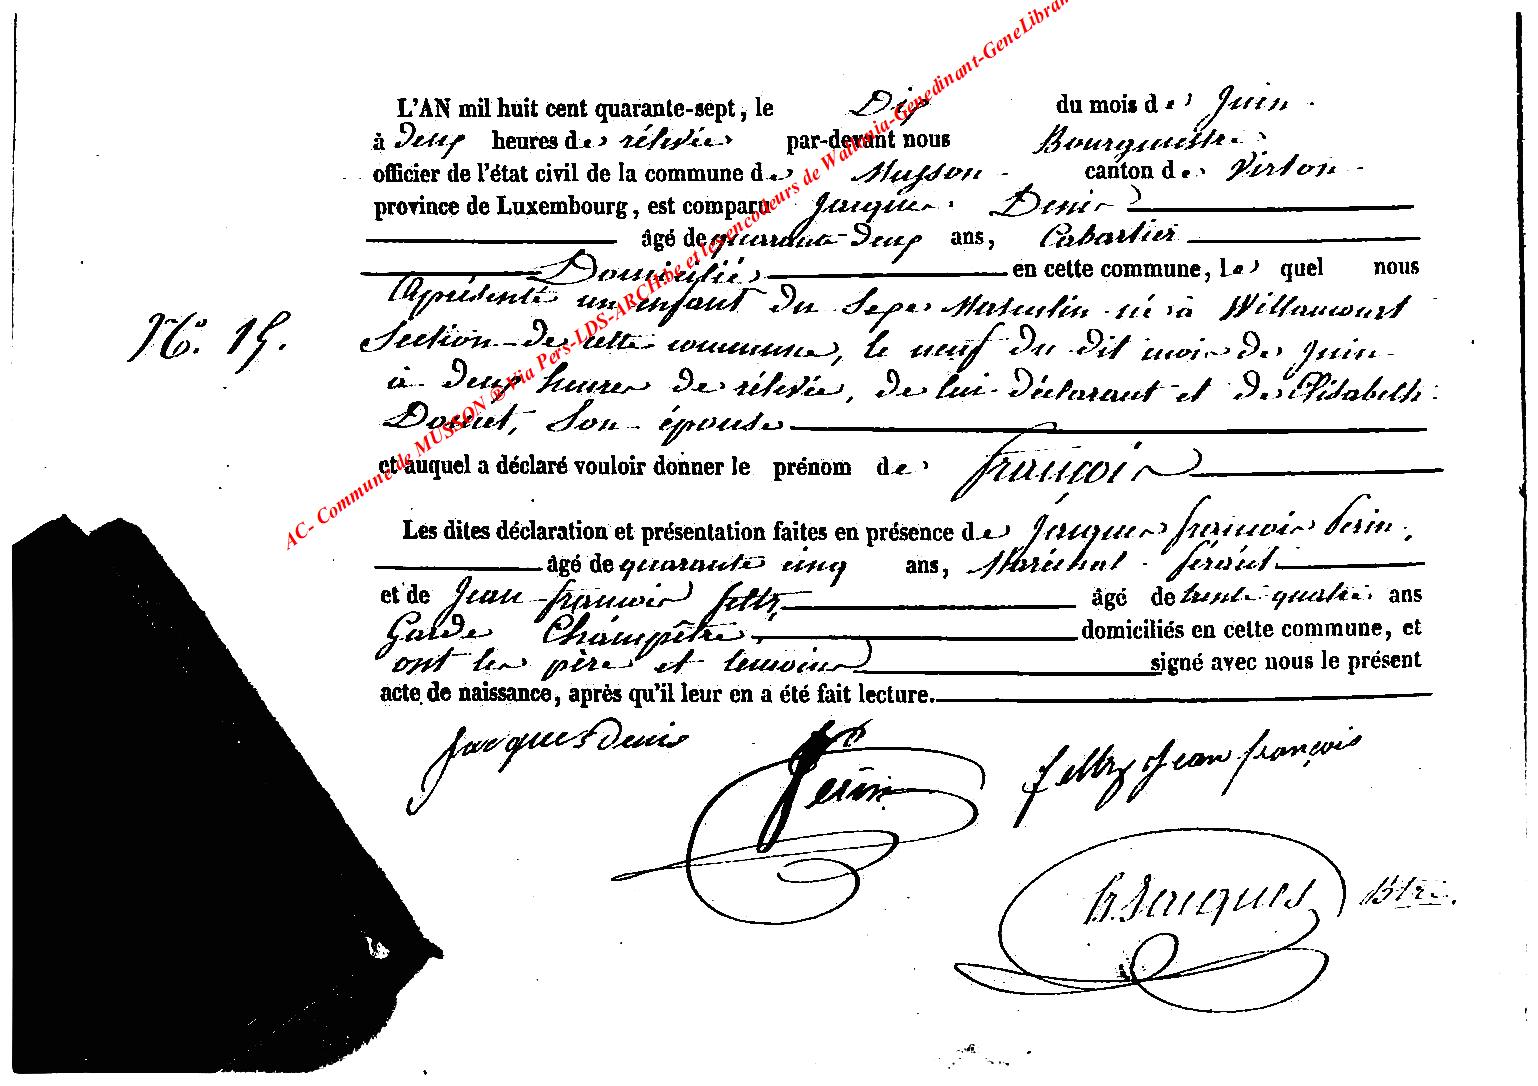 AC- Commune de MUSSON @ Via Pers-LDS-ARCH.be et les encodeurs de Wallonia-Genedinant-GeneLibran
L'AN mil huit cent quarante-sept, le Dix du mois de Juin
à Deux heures de rélevée par-devant nous Bourgmestre
officier de l'état civil de la commune de Musson canton de Virton
province de Luxembourg, est comparu Jacques Denis
âgé de quarante-Deux ans, Cabartier
Domicilié en cette commune, le quel nous
Aprésenté un enfant du Sexe Masculin né à Willancourt
Section de cette commune, le neuf du dit mois de Juin
à Deux heures de rélevée, de lui déclarant et de Elisabeth
Son épouse
et auquel a déclaré vouloir donner le prénom de françois
Les dites déclaration et présentation faites en présence de Jacques françois Perin,
âgé de quarante cinq ans, Maréchal férant
et de Jean françois feltz, âgé de trente quatre ans
Garde Champêtre, domiciliés en cette commune, et
ont les père et temoins signé avec nous le présent
acte de naissance, après qu'il leur en a été fait lecture.
No. 15.
Jacques Denis
Perin
feltz Jean françois
Jacques Btre.